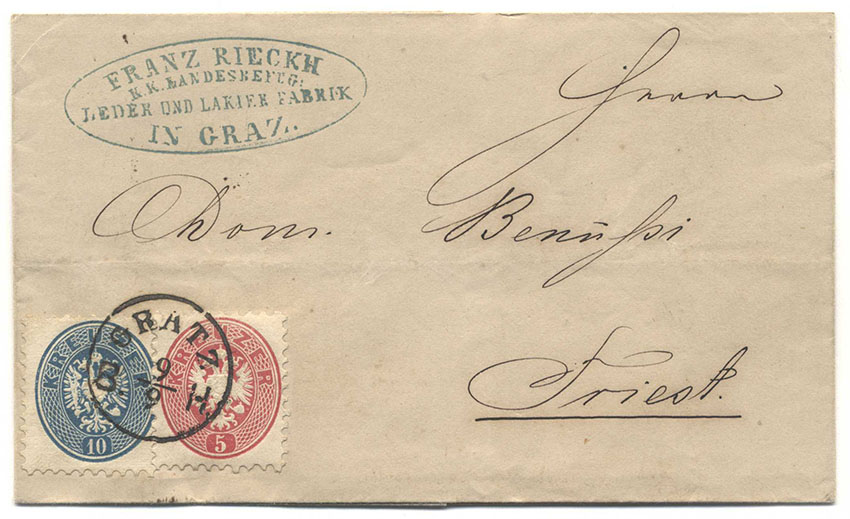 FRANZ RIECKH
K.K. LANDESBEFUG:
LEDER UND LAKIER FABRIK
IN GRAZ.
Herrn
Dom. Benußi
Triest.
GRATZ
9
KREUZER
10
KREUZER
5